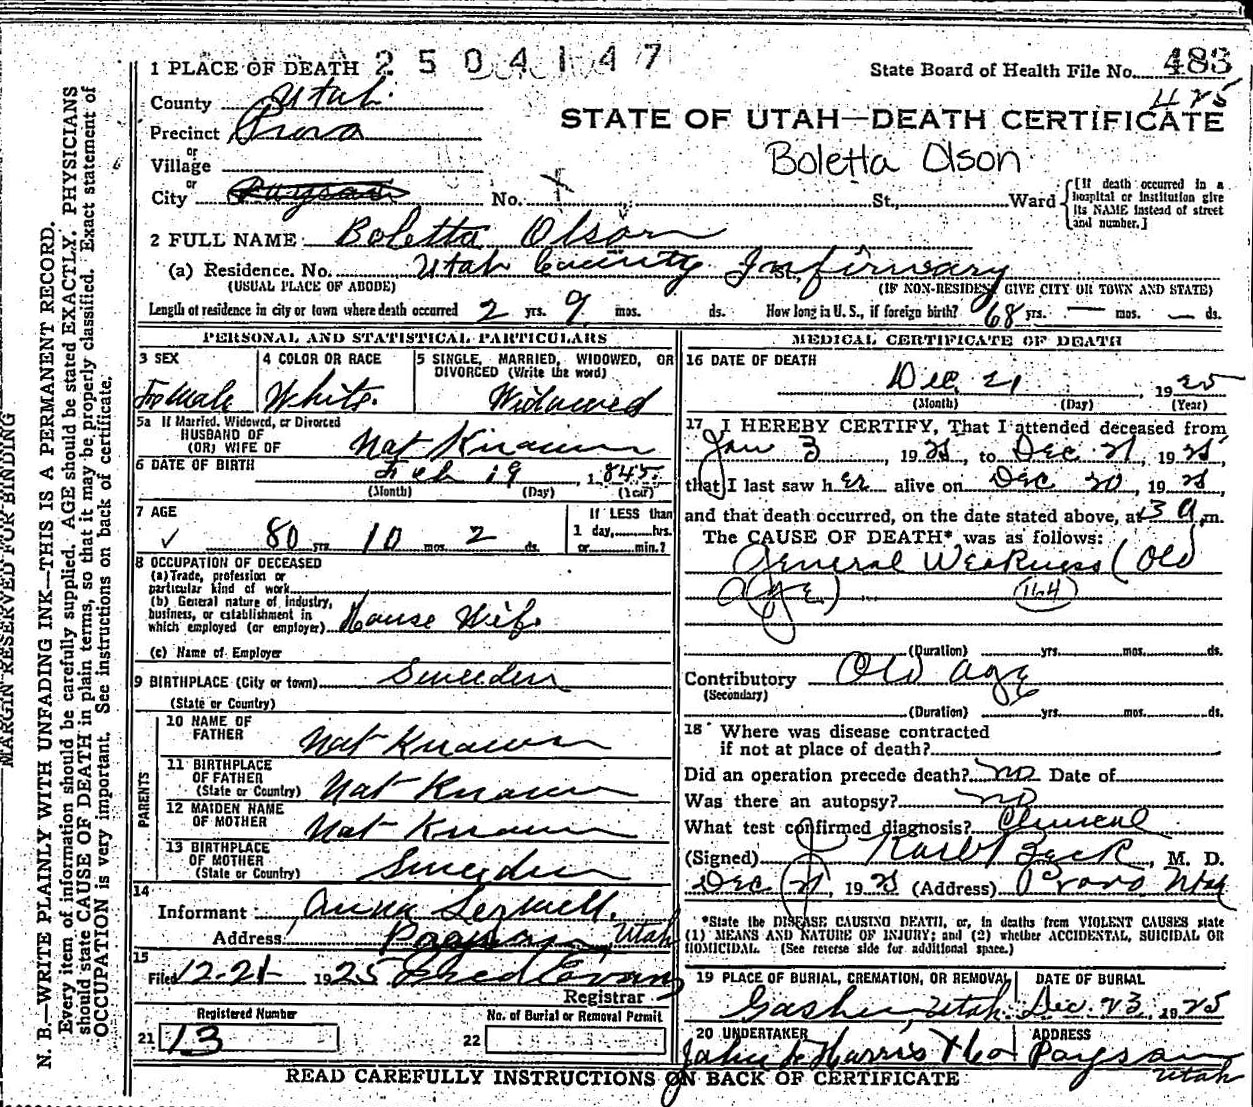 1 PLACE OF DEATH 2504147
State Board of Health File No. 483
425
County Utah.
Precinct Provo
STATE OF UTAH—DEATH CERTIFICATE
Boletta Olson
or
Village
or
City Payson No. St., Ward
[If death occurred in a hospital or institution give its NAME instead of street and number.]
2 FULL NAME Boletta Olson
(a) Residence. No. Utah County Infirmary St.
(USUAL PLACE OF ABODE) (IF NON-RESIDENT GIVE CITY OR TOWN AND STATE)
Length of residence in city or town where death occurred 2 yrs. 9 mos. ds. How long in U. S., if foreign birth? 68 yrs. — mos. — ds.
PERSONAL AND STATISTICAL PARTICULARS
3 SEX
Female
4 COLOR OR RACE
White.
5 SINGLE, MARRIED, WIDOWED, OR DIVORCED (Write the word)
Widowed
5a If Married, Widowed, or Divorced
HUSBAND OF
(OR) WIFE OF Not Known
6 DATE OF BIRTH Feb 19, 1845
(Month) (Day) (Year)
7 AGE
80 yrs. 10 mos. 2 ds.
If LESS than
1 day,......hrs.
or......min.?
8 OCCUPATION OF DECEASED
(a) Trade, profession or
particular kind of work
(b) General nature of industry,
business, or establishment in
which employed (or employer) House Wife
(c) Name of Employer
9 BIRTHPLACE (City or town) Sweeden
(State or Country)
PARENTS
10 NAME OF
FATHER Not Known
11 BIRTHPLACE
OF FATHER
(State or Country) Not Known
12 MAIDEN NAME
OF MOTHER Not Known
13 BIRTHPLACE
OF MOTHER
(State or Country) Sweeden
14
Informant Anna
Address Payson, Utah
15
Filed 12-21- 1925 Fred Evans
Registrar
Registered Number
21 13
No. of Burial or Removal Permit
22
MEDICAL CERTIFICATE OF DEATH
16 DATE OF DEATH
Dec. 21, 1925
(Month) (Day) (Year)
17 I HEREBY CERTIFY, That I attended deceased from
Jan 3 1925, to Dec 21, 1925,
that I last saw her alive on Dec 20, 1925,
and that death occurred, on the date stated above, at 3 a.m.
The CAUSE OF DEATH* was as follows:
General Weakness (Old
age) (164)
(Duration) yrs. mos. ds.
Contributory Old age
(Secondary)
(Duration) yrs. mos. ds.
18 Where was disease contracted
if not at place of death?
Did an operation precede death? no Date of
Was there an autopsy? no
What test confirmed diagnosis? Clinical
(Signed) J Karl Beck, M. D.
Dec 21, 1925 (Address) Provo Utah
*State the DISEASE CAUSING DEATH, or, in deaths from VIOLENT CAUSES state
(1) MEANS AND NATURE OF INJURY; and (2) whether ACCIDENTAL, SUICIDAL OR
HOMICIDAL. (See reverse side for additional space.)
19 PLACE OF BURIAL, CREMATION, OR REMOVAL
Goshen, Utah
DATE OF BURIAL
Dec. 23, 1925
20 UNDERTAKER
John Harris & Co
ADDRESS
Payson
Utah
READ CAREFULLY INSTRUCTIONS ON BACK OF CERTIFICATE
MARGIN RESERVED FOR BINDING
N. B.—WRITE PLAINLY WITH UNFADING INK—THIS IS A PERMANENT RECORD.
Every item of information should be carefully supplied. AGE should be stated EXACTLY. PHYSICIANS
should state CAUSE OF DEATH in plain terms, so that it may be properly classified. Exact statement of
OCCUPATION is very important. See instructions on back of certificate.